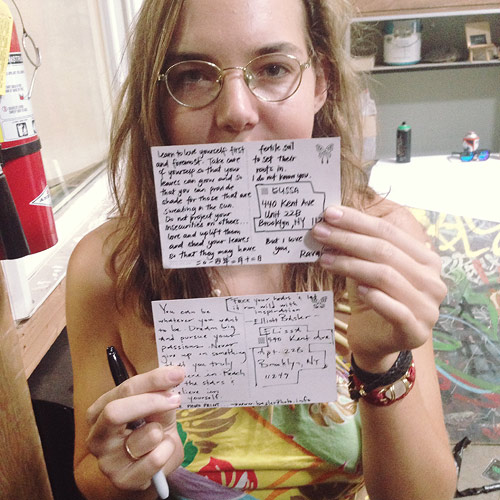 Learn to love yourself first
and foremost. Take care
of yourself so that your
leaves can grow and so
that you can provide
shade for those that are
in the sun.
Do not project your
insecurities on others...
love and uplift them
and shed your leaves
so that they may have
fertile soil
to set their
roots in.
I do not know you,
But I love
you,
ELISSA
440 Kent Ave
Unit 22E
Brooklyn, NY
You can be
whatever you want
to be. Dream big
and pursue your
passions. Never
give up on something
you truly
Reach
the stars &
believe in
yourself
Face your heart &
run wild with
inspiration
- Elliott
Elissa
440 Kent Ave.
Apt. 22E
Brooklyn, NY
11249